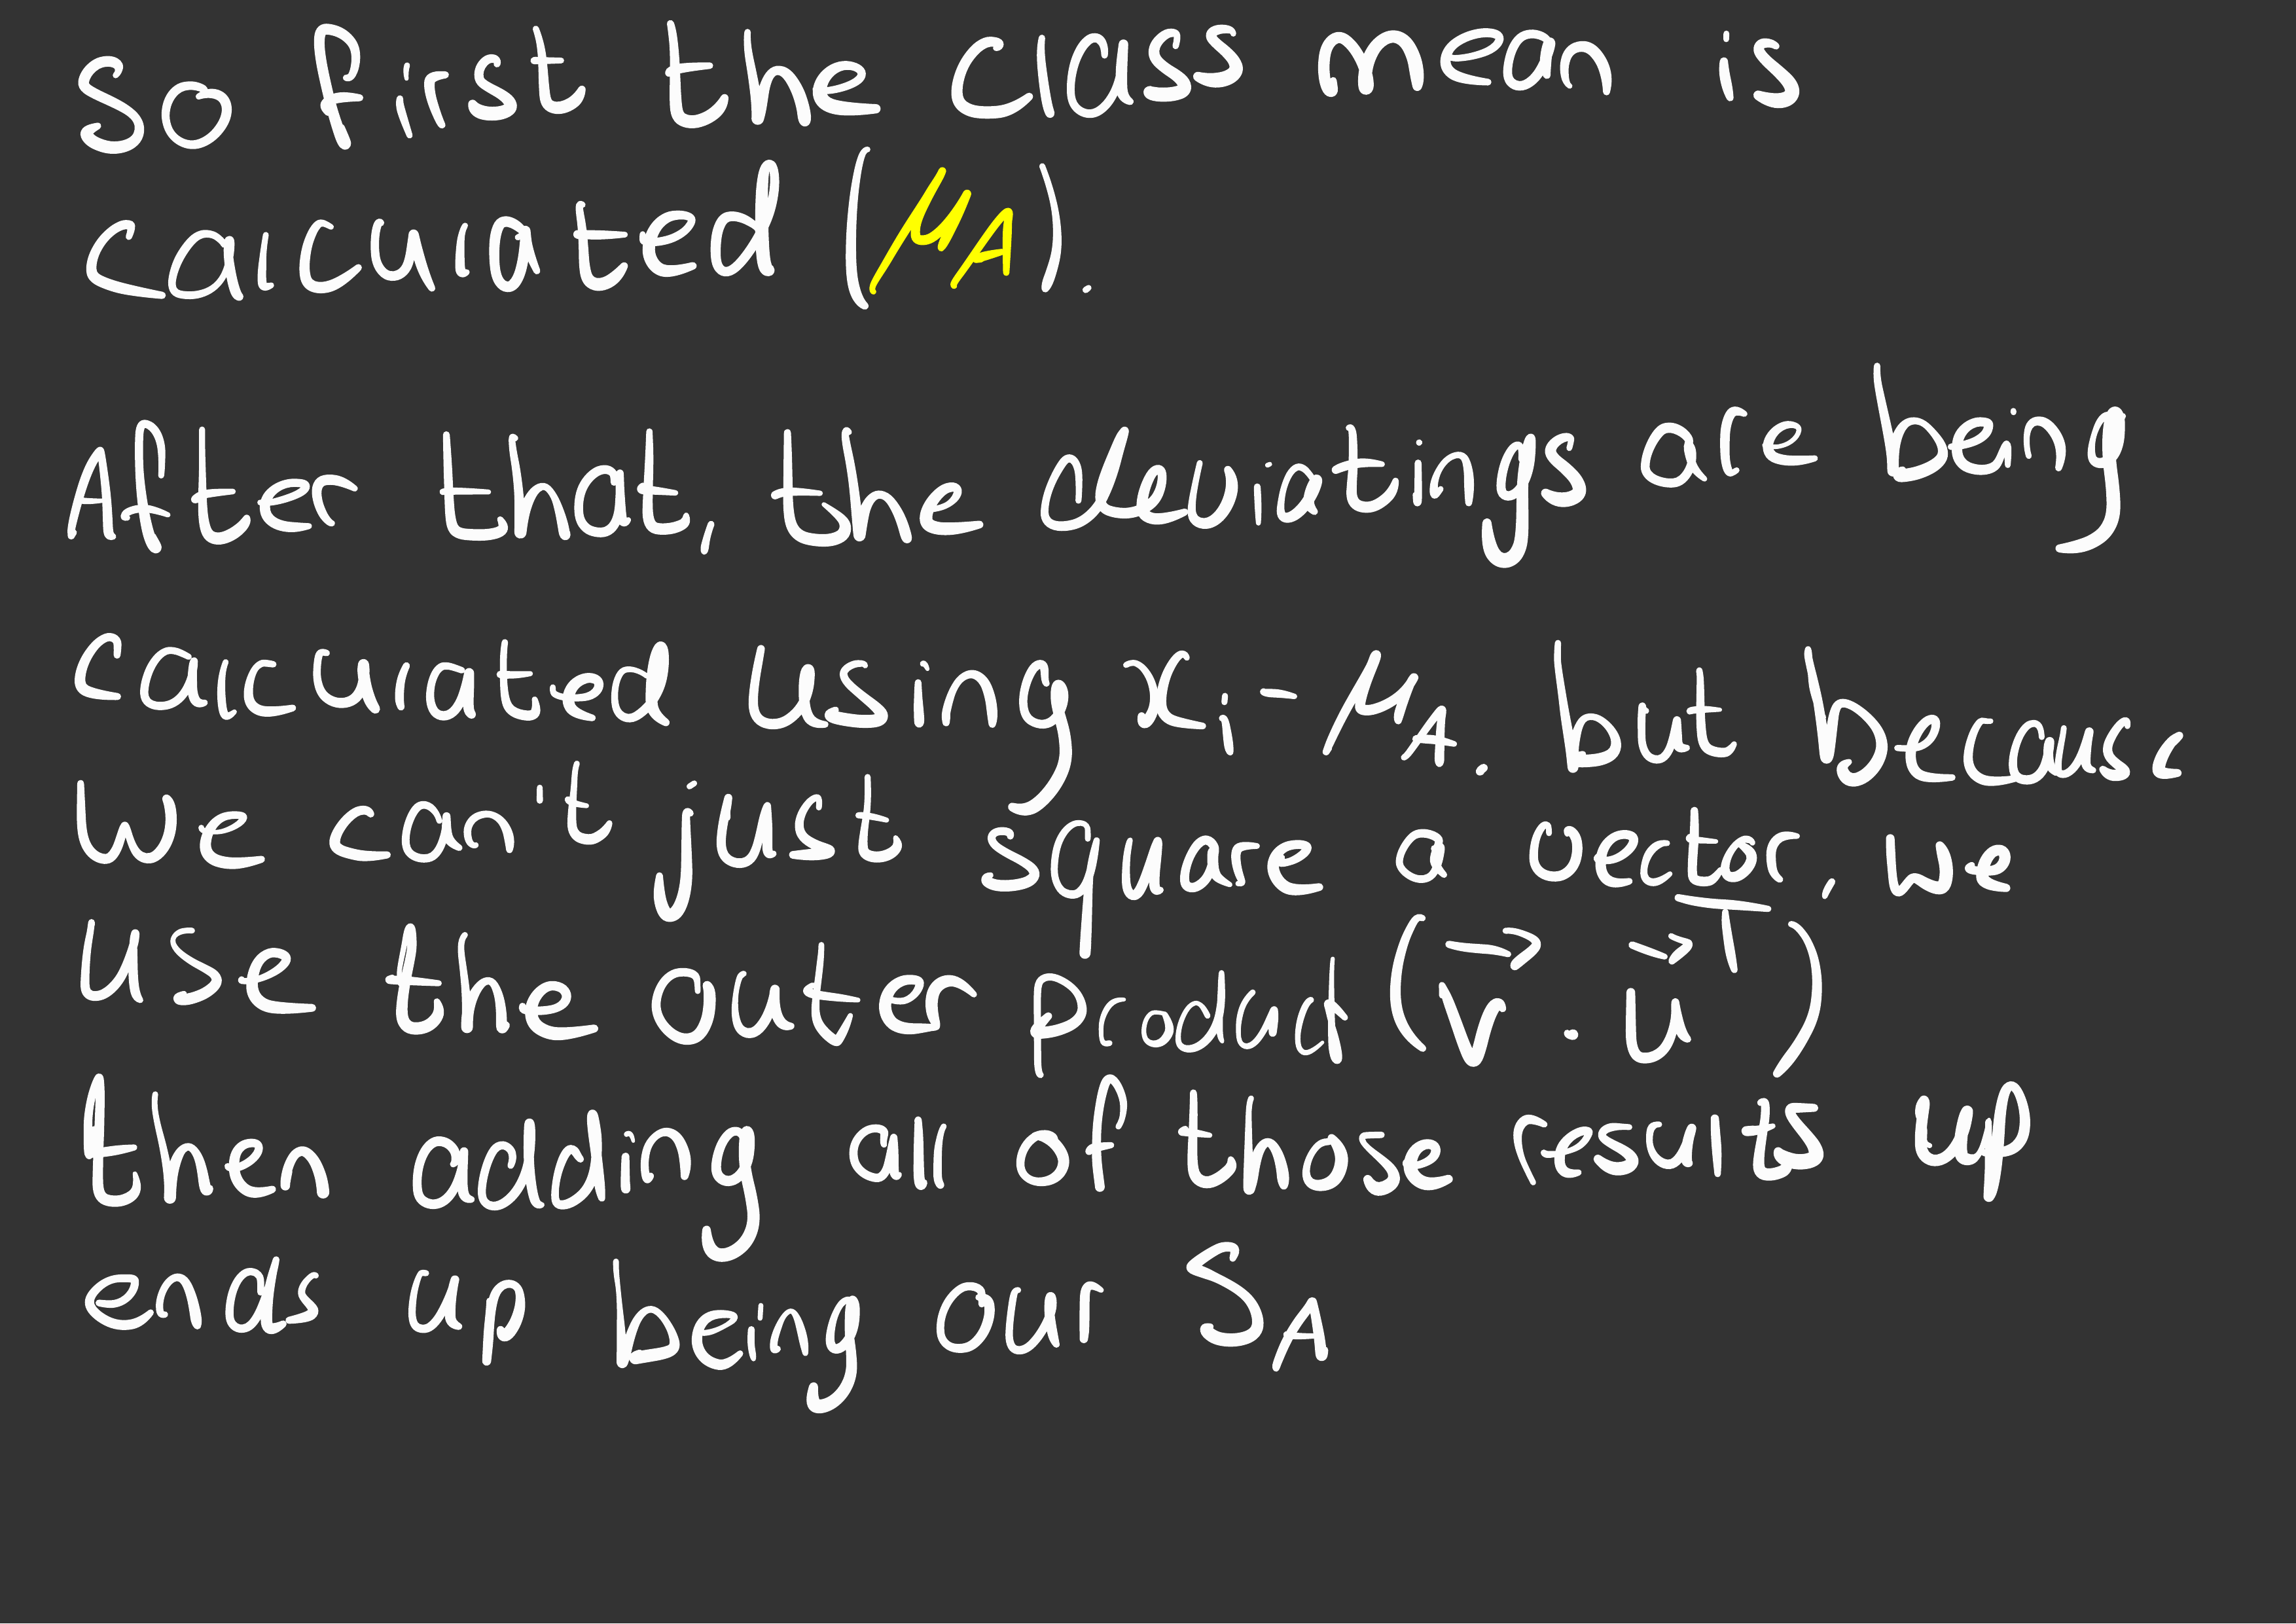 So first the class mean is
calculated (μ_A).
After that, the deviatings are being
calculated using x_i - μ_A. but because
we can't just square a vector, we
use the outer product (v⃗ · u⃗^T)
then adding all of those results up
ends up being our S_A